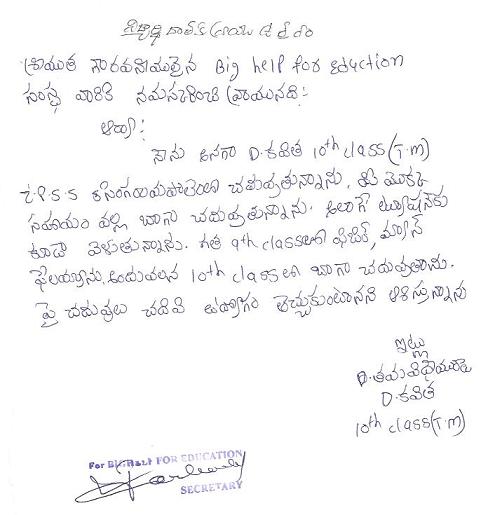 విద్యార్థి దాతకు వ్రాయు ఉత్తరం
శ్రీయుత గౌరవనీయులైన Big help for Eduction
సంస్థ వారికి నమస్కరించి వ్రాయునది:
ఆర్యా!
నేను అనగా D.కవిత 10th class (T.M)
Z.P.S.S చదువుతున్నాను. మీ యొక్క
సహాయం వల్ల బాగా చదువుతున్నాను. అలాగే ట్యూషన్‌కు
కూడా వెళుతున్నాను. గత 9th classలో ఫిజిక్స్, మ్యాథ్స్
ఫెలయ్యాను. అందువలన 10th class లో బాగా చదువుతాను.
పై చదువులు చదివి ఉద్యోగం తెచ్చుకుంటానని ఆశిస్తున్నాను
ఇట్లు
D.కవిత
10th class (T.M)
For BIG HELP FOR EDUCATION
SECRETARY